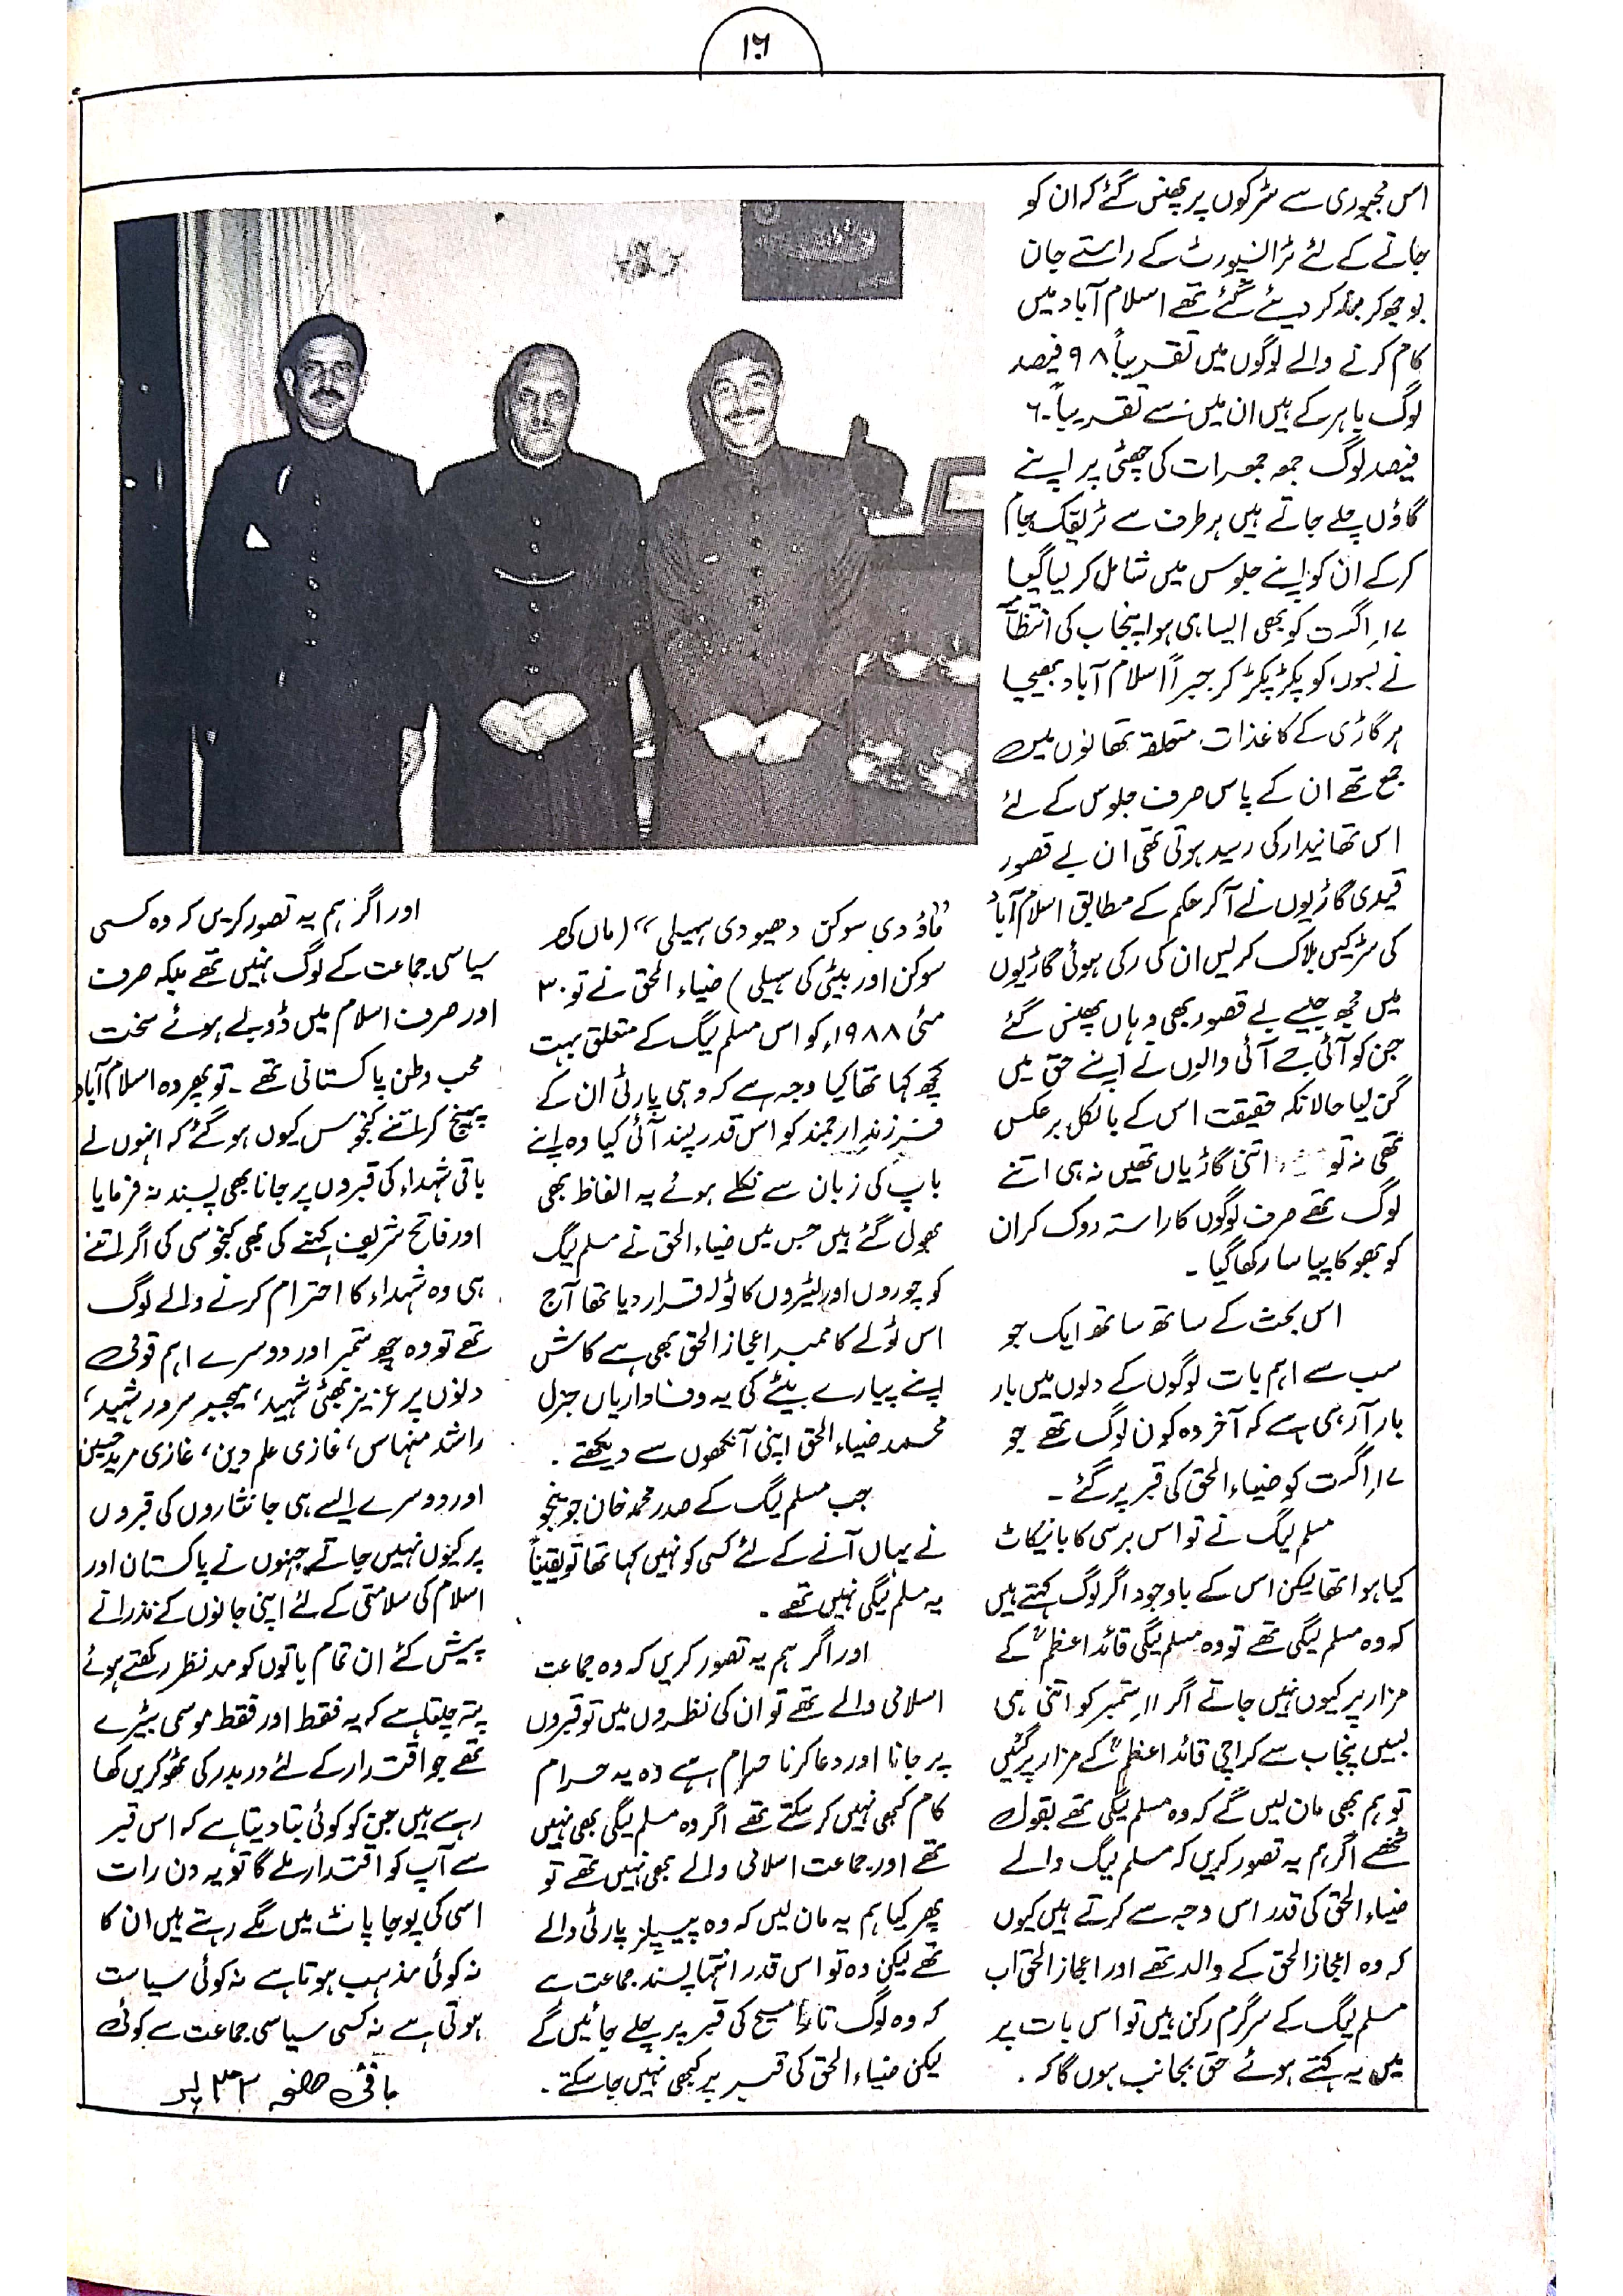 ۱۶
اس مجبوری سے سڑکوں پر پھنس گئے کہ ان کو
جانے کے لئے ٹرانسپورٹ کے راستے جان
بوجھ کر بند کر دیئے گئے تھے اسلام آباد میں
کام کرنے والے لوگوں میں تقریباً ۹۸ فیصد
لوگ باہر کے ہیں ان میں سے تقریباً ۶۰
فیصد لوگ جمعہ جمعرات کی چھٹی پر اپنے
گاؤں چلے جاتے ہیں ہر طرف سے ٹریفک جام
کر کے ان کو اپنے جلوس میں شامل کر لیا گیا
۱۷ اگست کو بھی ایسا ہی ہوا پنجاب کی انتظامیہ
نے بسوں کو پکڑ پکڑ کر جبراً اسلام آباد بھیجا
ہر گاڑی کے کاغذات متعلقہ تھانوں میں
جمع تھے ان کے پاس صرف جلوس کے لئے
اس تھانیدار کی رسید ہوتی تھی ان بے قصور
قیدی گاڑیوں نے آکر حکم کے مطابق اسلام آباد
کی سڑکیں بلاک کر لیں ان کی رکی ہوئی گاڑیوں
میں مجھ جیسے بے قصور بھی وہاں پھنس گئے
جن کو آئی جے آئی والوں نے اپنے حق میں
گن لیا حالانکہ حقیقت اس کے بالکل برعکس
تھی نہ تو اتنی گاڑیاں تھیں نہ ہی اتنے
لوگ تھے صرف لوگوں کا راستہ روک کر ان
کو بھوکا پیاسا رکھا گیا ۔
اس بحث کے ساتھ ساتھ ایک جو
سب سے اہم بات لوگوں کے دلوں میں بار
بار آ رہی ہے کہ آخر وہ کون لوگ تھے جو
۱۷ اگست کو ضیاء الحق کی قبر پر گئے ۔
مسلم لیگ نے تو اس برسی کا بائیکاٹ
کیا ہوا تھا لیکن اس کے باوجود اگر لوگ کہتے ہیں
کہ وہ مسلم لیگی تھے تو وہ مسلم لیگی قائد اعظمؒ کے
مزار پر کیوں نہیں جاتے اگر ۱۱ ستمبر کو اتنی ہی
بسیں پنجاب سے کراچی قائد اعظمؒ کے مزار پر گئیں
تو ہم بھی مان لیں گے کہ وہ مسلم لیگی تھے بقول
شخصے اگر ہم یہ تصور کریں کہ مسلم لیگ والے
ضیاء الحق کی قدر اس وجہ سے کرتے ہیں کیوں
کہ وہ اعجاز الحق کے والد تھے اور اعجاز الحق اب
مسلم لیگ کے سرگرم رکن ہیں تو اس بات پر
میں یہ کہتے ہوئے حق بجانب ہوں گا کہ ۔
"ماؤ دی سوکن دھیو دی سہیلی" (ماں کی
سوکن اور بیٹی کی سہیلی) ضیاء الحق نے تو ۳۰
مئی ۱۹۸۸ء کو اس مسلم لیگ کے متعلق بہت
کچھ کہا تھا کیا وجہ ہے کہ وہی پارٹی ان کے
فرزند ارجمند کو اس قدر پسند آئی کیا وہ اپنے
باپ کی زبان سے نکلے ہوئے یہ الفاظ بھی
بھول گئے ہیں جس میں ضیاء الحق نے مسلم لیگ
کو چوروں اور لٹیروں کا ٹولہ قرار دیا تھا آج
اس ٹولے کا ممبر اعجاز الحق بھی ہے کاش
اپنے پیارے بیٹے کی یہ وفاداریاں جنرل
محمد ضیاء الحق اپنی آنکھوں سے دیکھتے ۔
جب مسلم لیگ کے صدر محمد خان جونیجو
نے یہاں آنے کے لئے کسی کو نہیں کہا تھا تو یقیناً
یہ مسلم لیگی نہیں تھے ۔
اور اگر ہم یہ تصور کریں کہ وہ جماعت
اسلامی والے تھے تو ان کی نظروں میں تو قبروں
پر جانا اور دعا کرنا حرام ہے وہ یہ حرام
کام کبھی نہیں کر سکتے تھے اگر وہ مسلم لیگی بھی نہیں
تھے اور جماعت اسلامی والے بھی نہیں تھے تو
پھر کیا ہم یہ مان لیں کہ وہ پیپلز پارٹی والے
تھے لیکن وہ تو اس قدر انتہا پسند جماعت ہے
کہ وہ لوگ تارا مسیح کی قبر پر چلے جائیں گے
لیکن ضیاء الحق کی قبر پر کبھی نہیں جا سکتے ۔
اور اگر ہم یہ تصور کریں کہ وہ کسی
سیاسی جماعت کے لوگ نہیں تھے بلکہ صرف
اور صرف اسلام میں ڈوبے ہوئے سخت
محب وطن پاکستانی تھے ۔ تو پھر وہ اسلام آباد
پہنچ کر اتنے کنجوس کیوں ہو گئے کہ انہوں نے
باقی شہداء کی قبروں پر جانا بھی پسند نہ فرمایا
اور فاتح شریف کہنے کی بھی کنجوسی کی اگر اتنے
ہی وہ شہداء کا احترام کرنے والے لوگ
تھے تو وہ چھ ستمبر اور دوسرے اہم قومی
دنوں پر عزیز بھٹی شہید، میجر سرور شہید،
راشد منہاس، غازی علم دین، غازی مرید حسین
اور دوسرے ایسے ہی جانثاروں کی قبروں
پر کیوں نہیں جاتے جنہوں نے پاکستان اور
اسلام کی سلامتی کے لئے اپنی جانوں کے نذرانے
پیش کئے ان تمام باتوں کو مد نظر رکھتے ہوئے
پتہ چلتا ہے کہ یہ فقط اور فقط موسمی بٹیرے
تھے جو اقتدار کے لئے در بدر کی ٹھوکریں کھا
رہے ہیں جن کو کوئی بتا دیتا ہے کہ اس قبر
سے آپ کو اقتدار ملے گا تو یہ دن رات
اسی کی پوجا پاٹ میں لگے رہتے ہیں ان کا
نہ کوئی مذہب ہوتا ہے نہ کوئی سیاست
ہوتی ہے نہ کسی سیاسی جماعت سے کوئی
باقی صفحہ ۳۳ پر